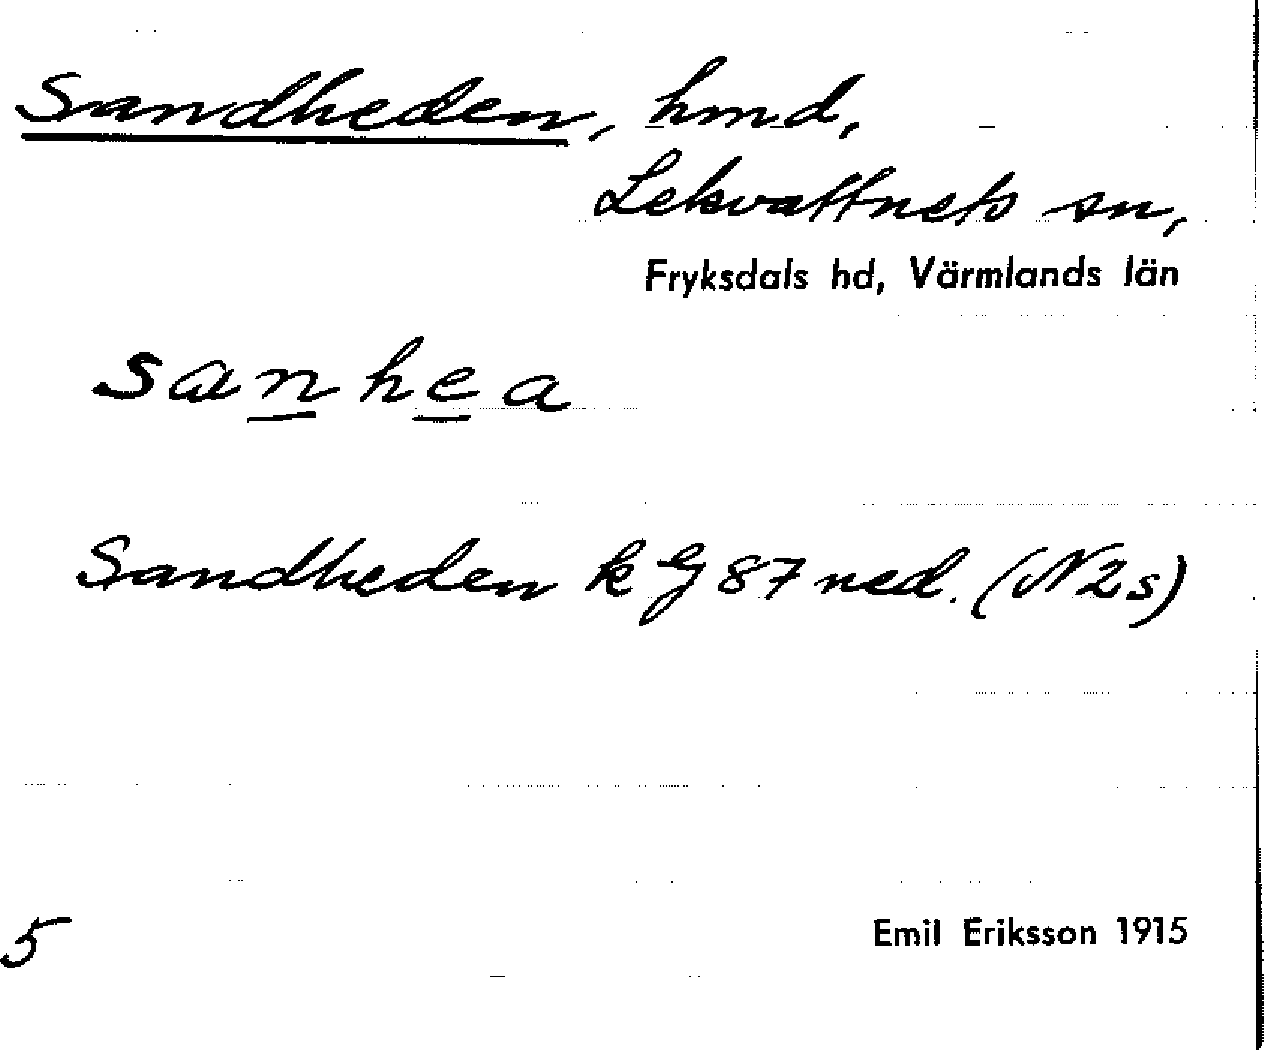 Sandheden, hmd,
Lekvattnets sn,
Fryksdals hd, Värmlands län
sanhea
Sandheden k G 87 ned. (N2s)
5
Emil Eriksson 1915